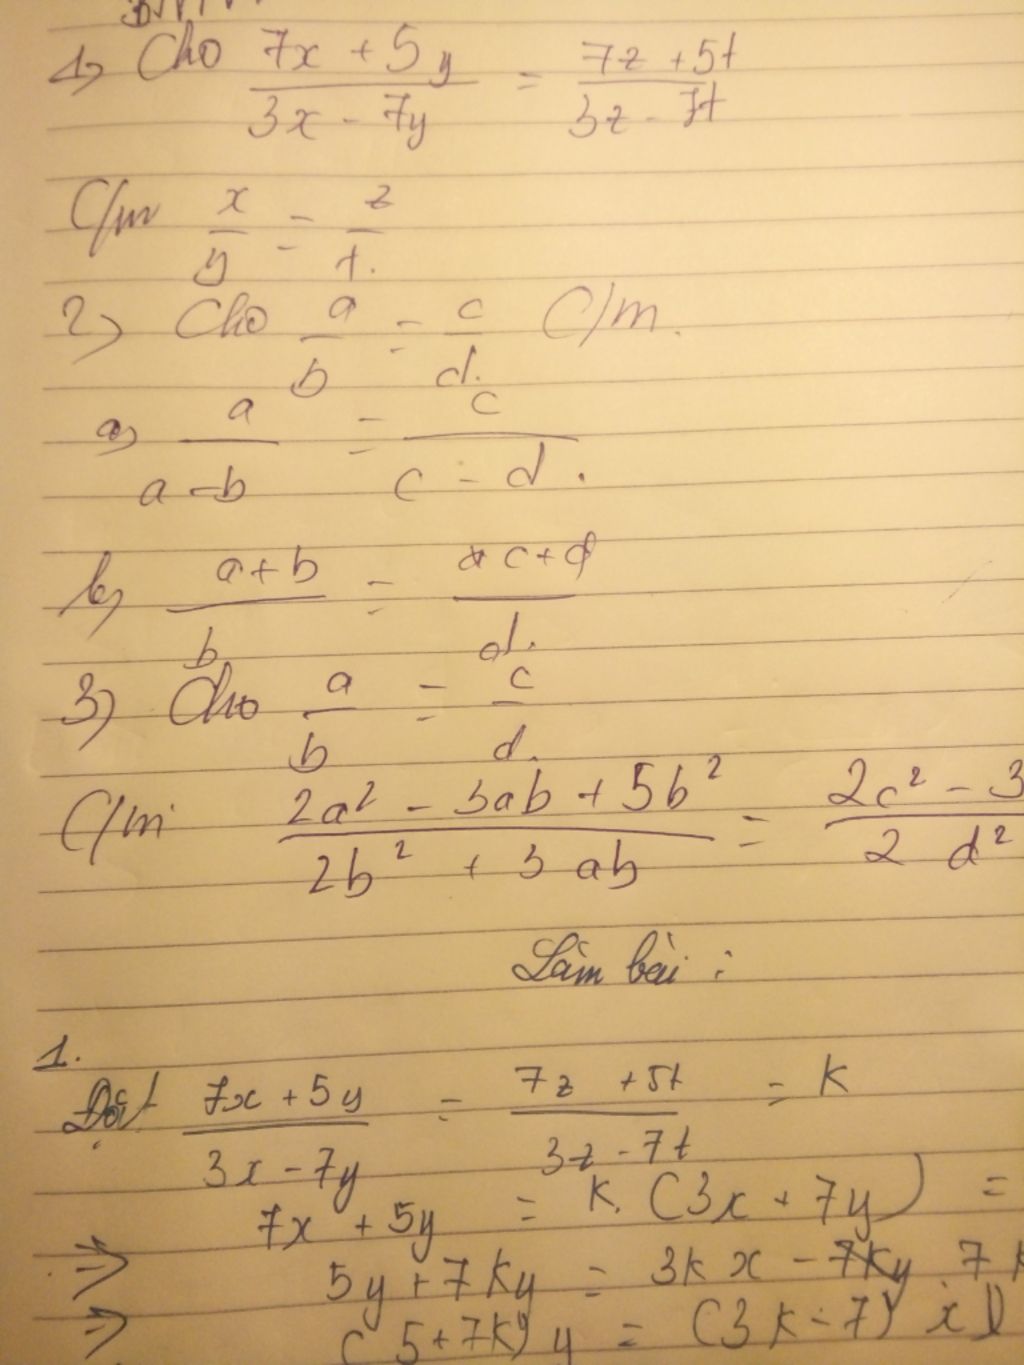 1) Cho (7x + 5y)/(3x - 7y) = (7z + 5t)/(3z - 7t)
C/m x/y = z/t.
2) Cho a/b = c/d. C/m.
a) a/(a - b) = c/(c - d).
b) (a + b)/b = (c + d)/d.
3) Cho a/b = c/d.
C/m (2a² - 3ab + 5b²)/(2b² + 3ab) = (2c² - 3)/(2d²)
Làm bài :
1.
Đặt (7x + 5y)/(3x - 7y) = (7z + 5t)/(3z - 7t) = k
7x + 5y = k. (3x + 7y) =
⇒ 5y + 7ky = 3kx - 7ky . 7
⇒ (5 + 7k) y = (3k - 7) x